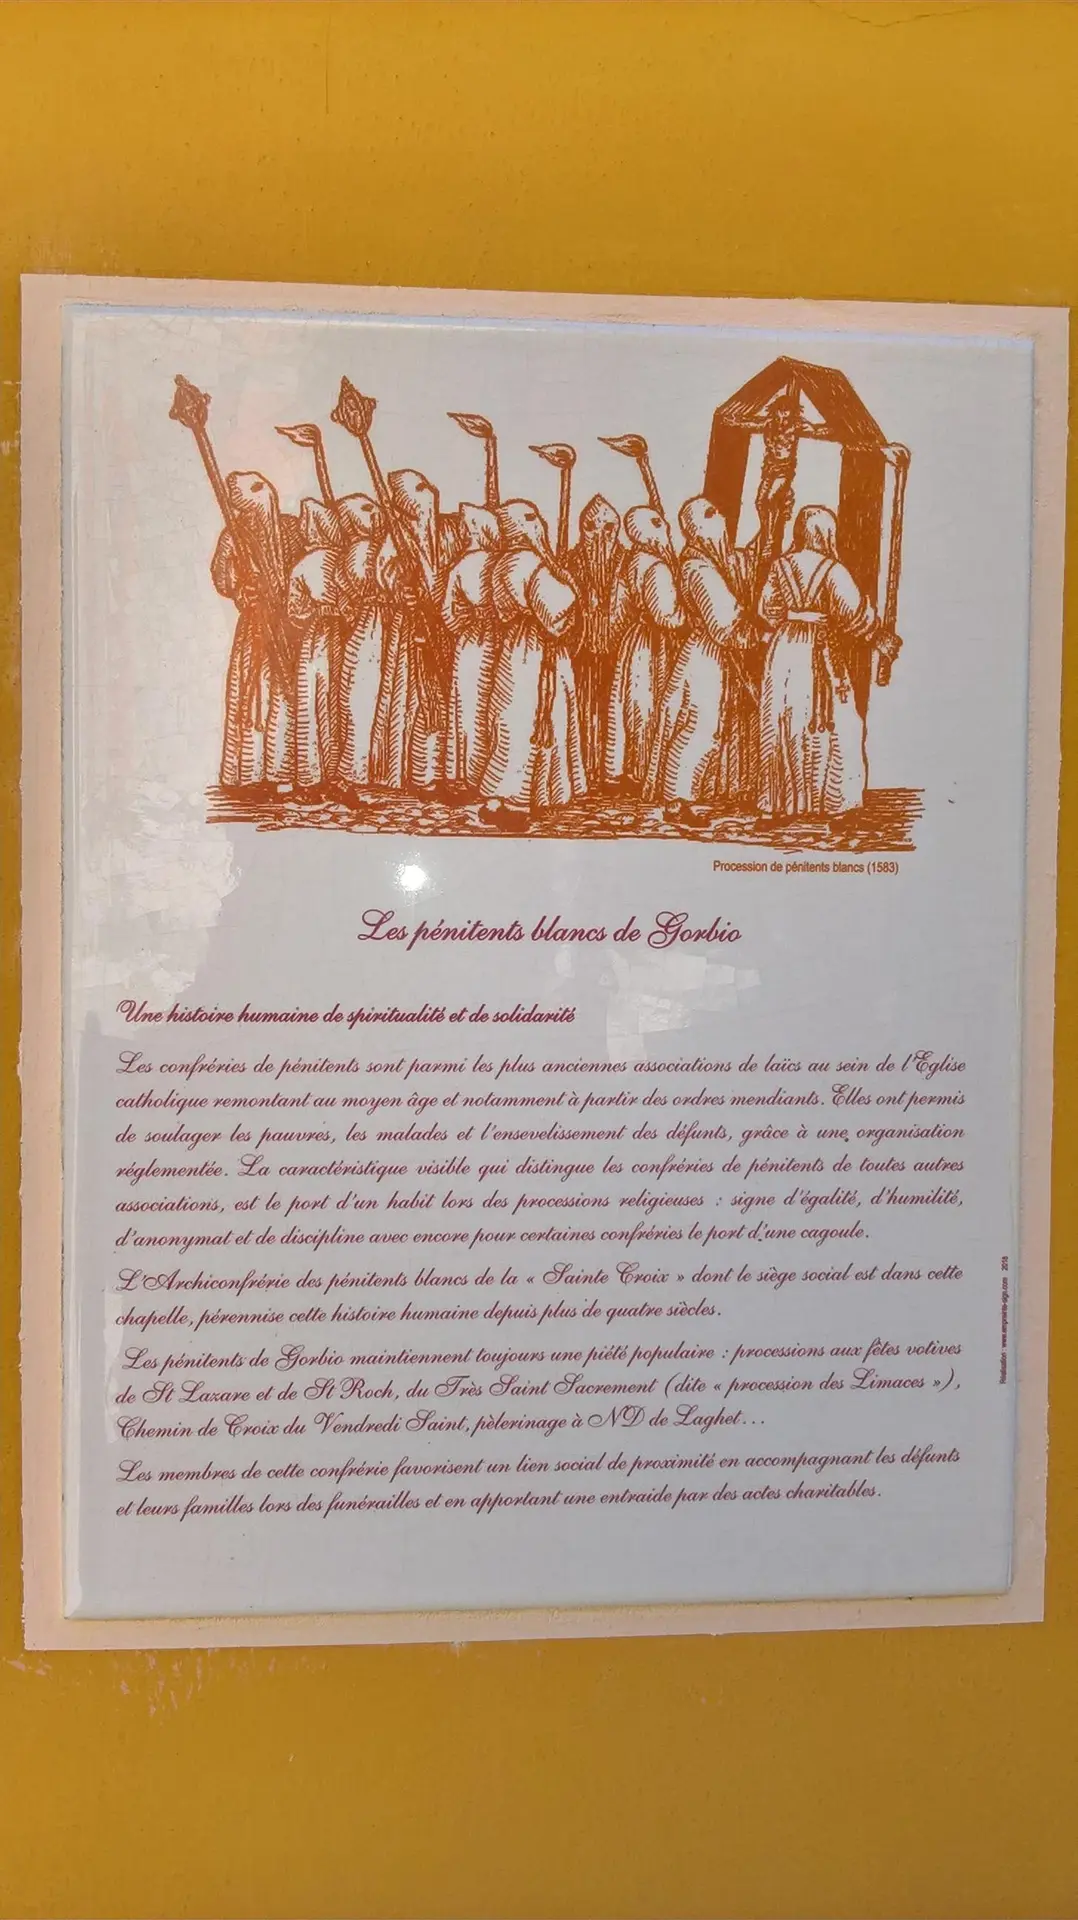 Procession de pénitents blancs (1583)
Les pénitents blancs de Gorbio
Une histoire humaine de spiritualité et de solidarité
Les confréries de pénitents sont parmi les plus anciennes associations de laïcs au sein de l'Eglise
catholique remontant au moyen âge et notamment à partir des ordres mendiants. Elles ont permis
de soulager les pauvres, les malades et l'ensevelissement des défunts, grâce à une organisation
réglementée. La caractéristique visible qui distingue les confréries de pénitents de toutes autres
associations, est le port d'un habit lors des processions religieuses : signe d'égalité, d'humilité,
d'anonymat et de discipline avec encore pour certaines confréries le port d'une cagoule.
L'Archiconfrérie des pénitents blancs de la « Sainte Croix » dont le siège social est dans cette
chapelle, pérennise cette histoire humaine depuis plus de quatre siècles.
Les pénitents de Gorbio maintiennent toujours une piété populaire : processions aux fêtes votives
de St Lazare et de St Roch, du Très Saint Sacrement (dite « procession des Limaces »),
Chemin de Croix du Vendredi Saint, pèlerinage à ND de Laghet...
Les membres de cette confrérie favorisent un lien social de proximité en accompagnant les défunts
et leurs familles lors des funérailles et en apportant une entraide par des actes charitables.
Réalisation : www.empreinte-sign.com 2018